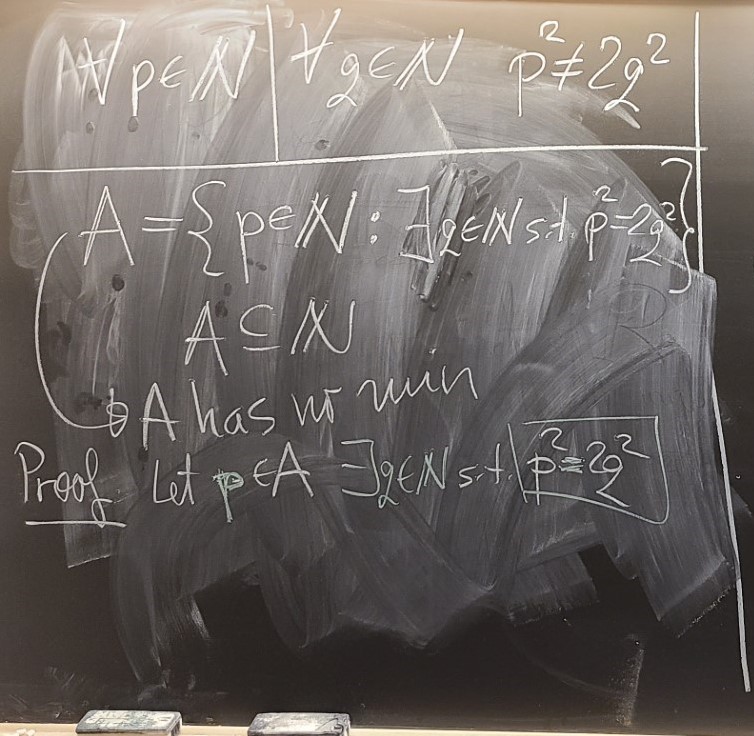 ∀ p∈ℕ | ∀ q∈ℕ p²≠2q²
A = { p∈ℕ : ∃q∈ℕ s.t. p²=2q² }
A ⊆ ℕ
A has no min
Proof. Let p∈A ∃q∈ℕ s.t. p²=2q²